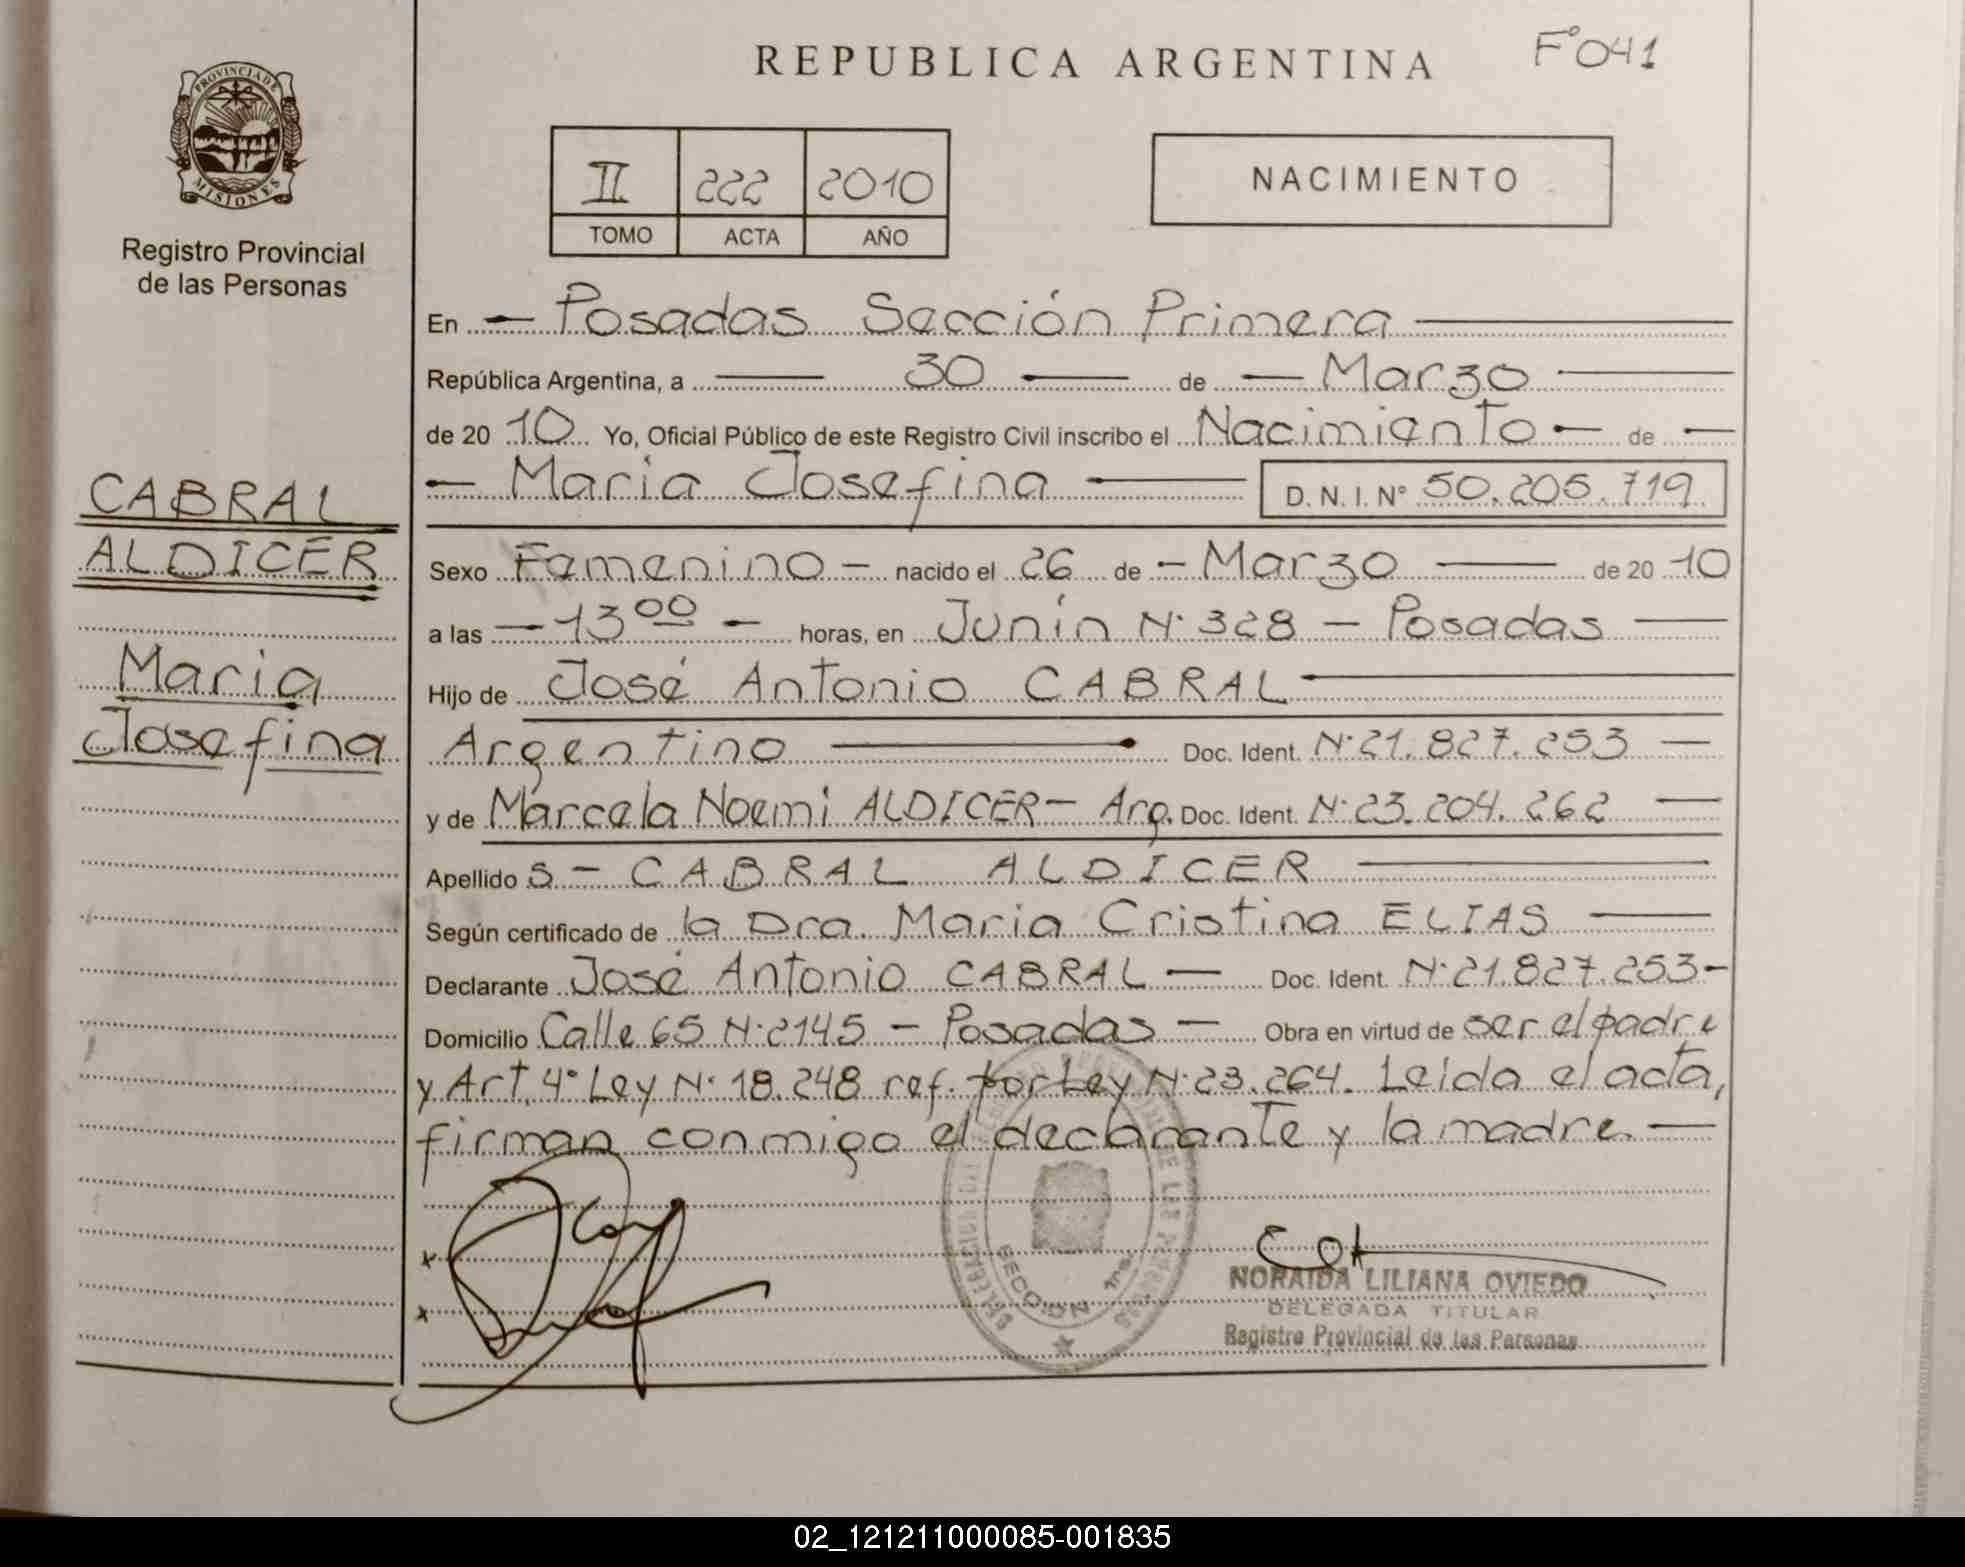 REPUBLICA ARGENTINA
Fº041
PROVINCIA DE
MISIONES
Registro Provincial
de las Personas
II 222 2010
TOMO ACTA AÑO
NACIMIENTO
En — Posadas Sección Primera —
República Argentina, a — 30 — de — Marzo —
de 20 10 Yo, Oficial Público de este Registro Civil inscribo el Nacimiento — de —
— Maria Josefina — D. N. I. Nº 50.205.719
CABRAL
ALDICER
Maria
Josefina
Sexo Femenino — nacido el 26 de — Marzo — de 20 10
a las — 13 00 — horas, en Junín Nº 328 — Posadas —
Hijo de José Antonio CABRAL —
Argentino — Doc. Ident. Nº 21.827.253 —
y de Marcela Noemi ALDICER — Arg. Doc. Ident. Nº 23.204.262 —
Apellido s — CABRAL ALDICER —
Según certificado de la Dra. Maria Cristina ELIAS —
Declarante José Antonio CABRAL — Doc. Ident. Nº 21.827.253 —
Domicilio Calle 65 Nº 2145 — Posadas — Obra en virtud de ser el padre
y Art. 4º Ley Nº 18.248 ref. por Ley Nº 23.264. Leida el acta,
firman conmigo el declarante y la madre. —
x
x
SECCION 1ra
NORAIDA LILIANA OVIEDO
DELEGADA TITULAR
Registro Provincial de las Personas
02_121211000085-001835